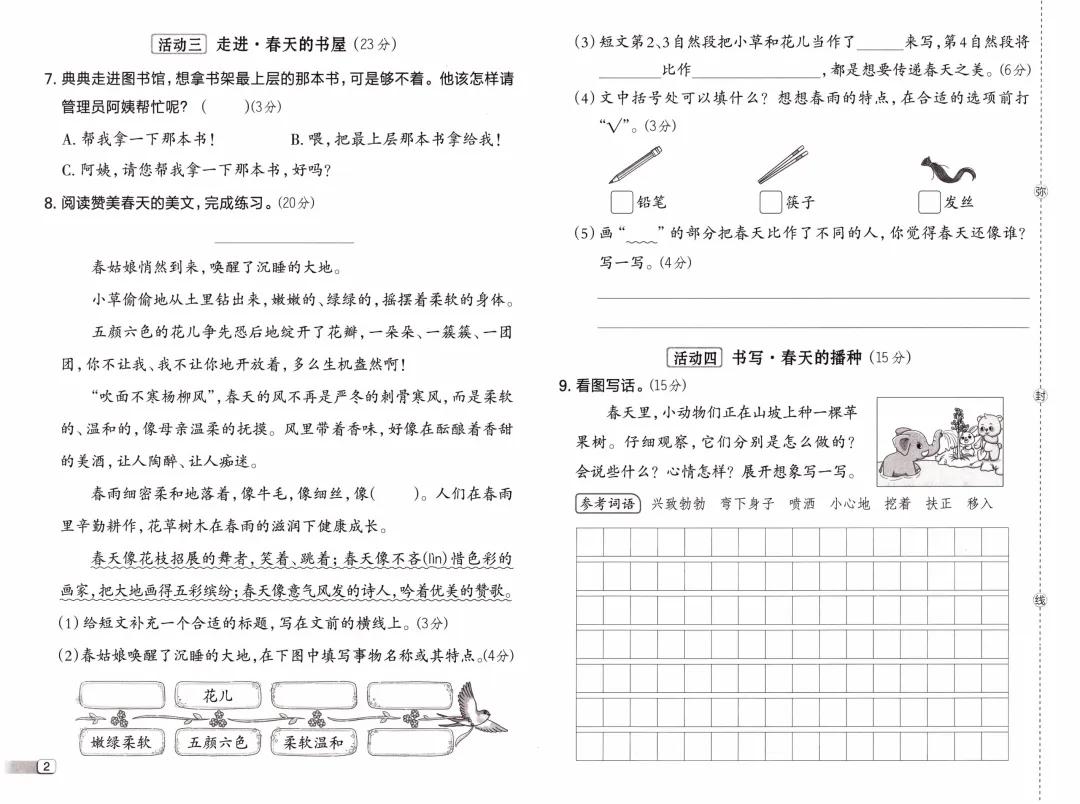 活动三 走进·春天的书屋(23分)
7. 典典走进图书馆,想拿书架最上层的那本书,可是够不着。他该怎样请
管理员阿姨帮忙呢? (  )(3分)
A. 帮我拿一下那本书! B. 喂,把最上层那本书拿给我!
C. 阿姨,请您帮我拿一下那本书,好吗?
8. 阅读赞美春天的美文,完成练习。(20分)
春姑娘悄然到来,唤醒了沉睡的大地。
小草偷偷地从土里钻出来,嫩嫩的、绿绿的,摇摆着柔软的身体。
五颜六色的花儿争先恐后地绽开了花瓣,一朵朵、一簇簇、一团
团,你不让我、我不让你地开放着,多么生机盎然啊!
“吹面不寒杨柳风”,春天的风不再是严冬的刺骨寒风,而是柔软
的、温和的,像母亲温柔的抚摸。风里带着香味,好像在酝酿着香甜
的美酒,让人陶醉、让人痴迷。
春雨细密柔和地落着,像牛毛,像细丝,像(  )。人们在春雨
里辛勤耕作,花草树木在春雨的滋润下健康成长。
春天像花枝招展的舞者,笑着、跳着;春天像不吝(lìn)惜色彩的
画家,把大地画得五彩缤纷;春天像意气风发的诗人,吟着优美的赞歌。
(1)给短文补充一个合适的标题,写在文前的横线上。(3分)
(2)春姑娘唤醒了沉睡的大地,在下图中填写事物名称或其特点。(4分)
花儿
嫩绿柔软 五颜六色 柔软温和
2
(3)短文第2、3自然段把小草和花儿当作了______来写,第4自然段将
________比作________________,都是想要传递春天之美。(6分)
(4)文中括号处可以填什么?想想春雨的特点,在合适的选项前打
“√”。(3分)
铅笔 筷子 发丝
(5)画“﹏﹏”的部分把春天比作了不同的人,你觉得春天还像谁?
写一写。(4分)
活动四 书写·春天的播种(15分)
9. 看图写话。(15分)
春天里,小动物们正在山坡上种一棵苹
果树。仔细观察,它们分别是怎么做的?
会说些什么?心情怎样?展开想象写一写。
参考词语 兴致勃勃 弯下身子 喷洒 小心地 挖着 扶正 移入
弥
封
线